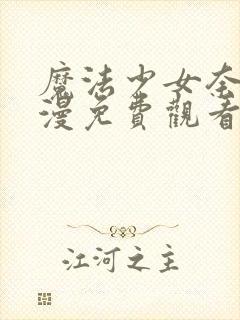 魔法少女奈
漫免費觀看
江河之主